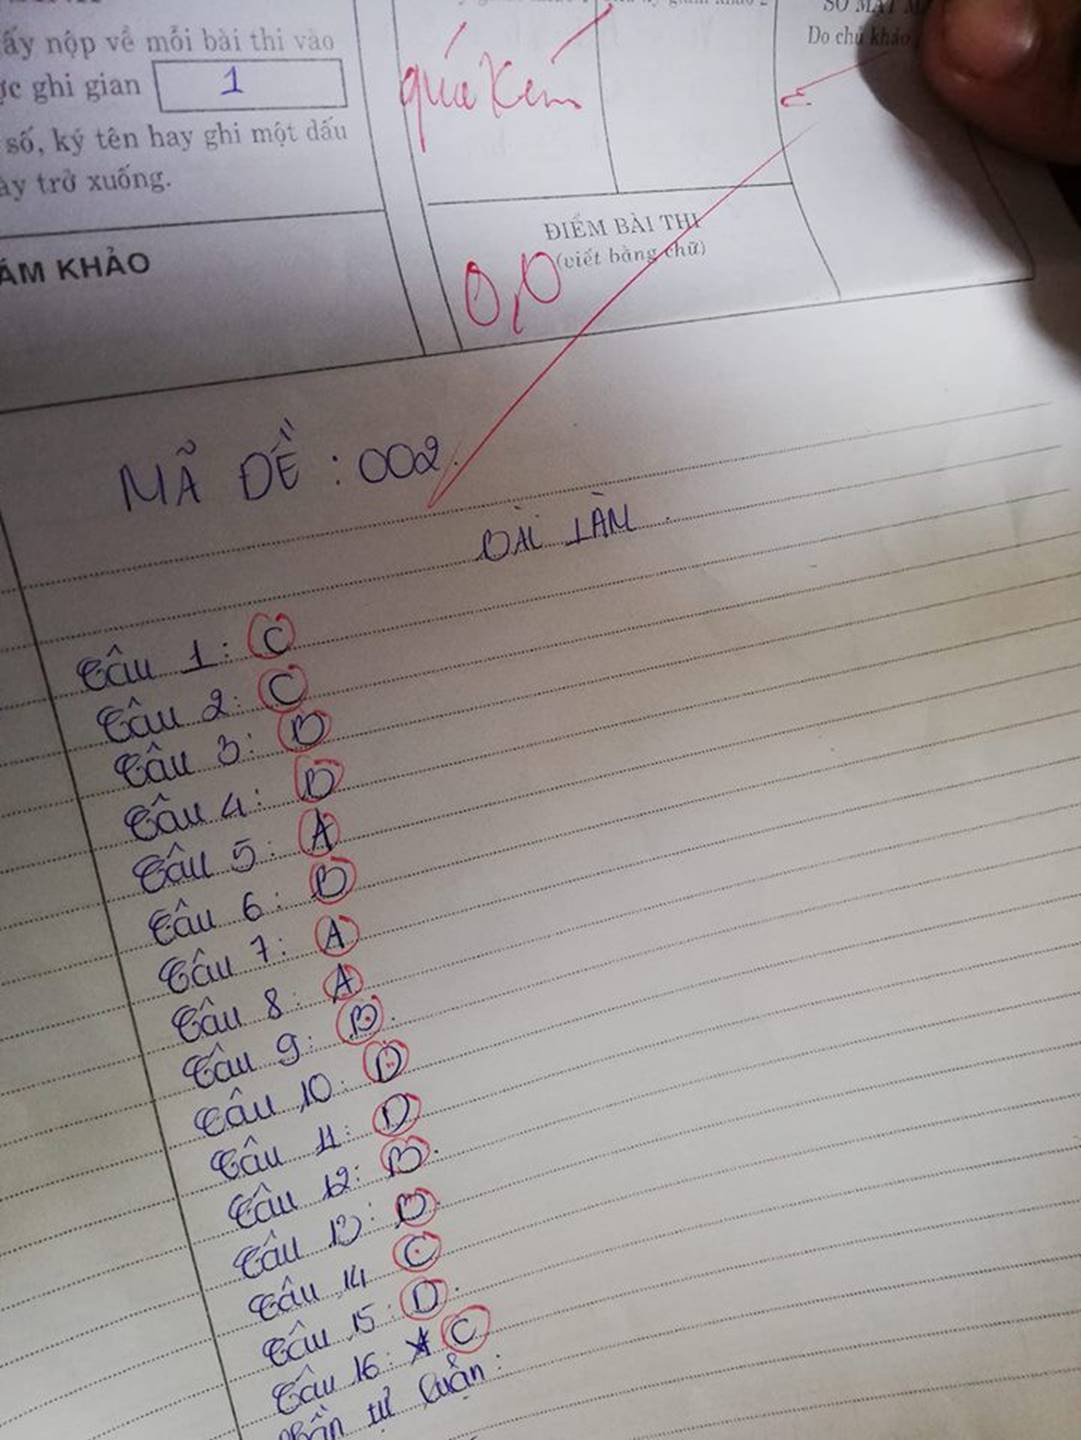 ấy nộp về mỗi bài thi vào
ghi gian 1
số, ký tên hay ghi một dấu
ày trở xuống.
ÁM KHẢO
quá kém
Do chủ khảo
ĐIỂM BÀI THI
(viết bằng chữ)
0,0
MÃ ĐỀ : 002.
BÀI LÀM.
Câu 1: C
Câu 2: C
Câu 3: D
Câu 4: D
Câu 5: A
Câu 6: D
Câu 7: A
Câu 8: A
Câu 9: B.
Câu 10: D
Câu 11: D
Câu 12: B.
Câu 13: D
Câu 14 C
Câu 15: D.
Câu 16: C
Phần tự luận: